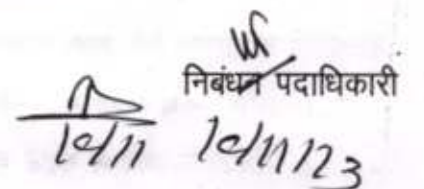 निबंधन पदाधिकारी
10/11 10/11/23